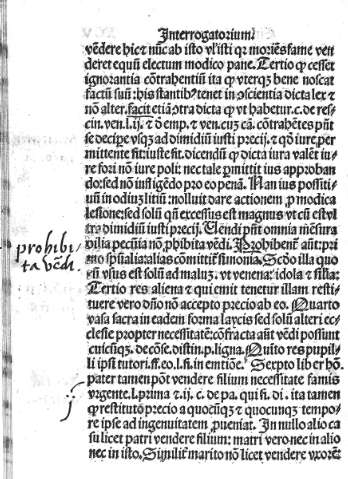 Interrogatorium
vēdere hic ⁊ nūc ab isto vl' isti qꝛ moriēs fame ven
deret equū electum modico pane. Tertio ꝙ cesset
ignorantia cōtrahentiū ita ꝙ vterqꝫ bene noscat
factū suū: his stantibꝰ tenet in ꝯscientia dicta lex ⁊
nō alter. facit etiā ꝯtra dicta ꝙ vt habetur .c. de res-
cin. ven. l. ij. ⁊ d̄ emp. ⁊ ven. cū cā. cōtrahētes pn̄t
se decipe vsqꝫ ad dimidiū iusti precij. ⁊ qð iure per
mittente fit: iuste fit. dicendū ꝙ dicta iura valēt iu-
re fori nō iure poli: nec tale ꝑmittit ius approban
do: sed nō infligēdo pro eo penā. Nam ius positi-
uū in odiuꝫ litiū: noluit dare actionem ꝓ modica
lesione: sed solū qn̄ excessus est magnus vt cū est vl
tra dimidiū iusti precij. Uendi pn̄t omnia mēsura
bilia pecūia nō ꝓhibita vēdi. Prohibenē aūt: pri-
mo spūalia: alias comittiē simonia. Scđo illa quo
rū vsus est solū ad maluꝫ. vt venena: idola ⁊ silia:
Tertio res aliena ⁊ qui emit tenetur illam resti-
tuere vero dn̄o nō accepto precio ab eo. Quarto
vasa sacra in eadem forma laycis sed solū alteri ec-
clesie propter necessitatē: cōfracta aūt vēdi possunt
cuicūqꝫ. de cōse. distin. j. ligna. Quito res pupil-
li ipsi tutori. ff. eo. l. si in emtiōe. Sexto liber hō.
pater tamen pōt vendere filium necessitate famis
vrgente. l. prima ⁊ ij. c. de pa. qui fi. di. ita tamen
ꝙ restituto precio a quocūqꝫ ⁊ quocunqꝫ tempo-
re ipse ad ingenuitatem ꝓueniat. In nullo alio ca
su licet patri vendere filium: matri vero nec in alio
nec in isto. Similiť marito nō licet vendere vxorē:
prohibi
ta vēdi.